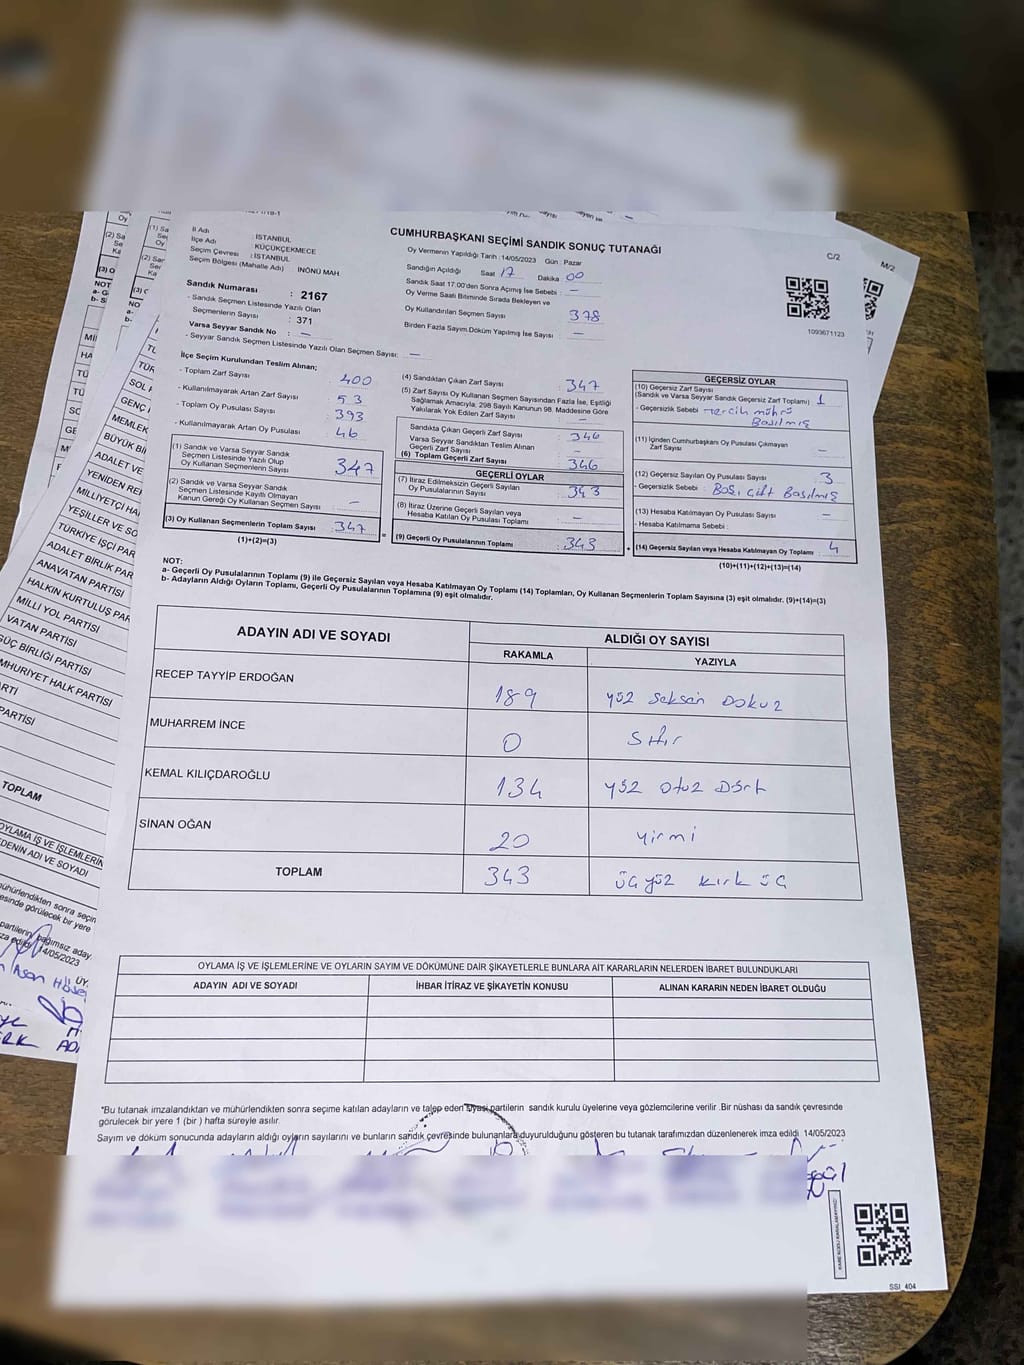 CUMHURBAŞKANI SEÇİMİ SANDIK SONUÇ TUTANAĞI
C/2
M/2
İl Adı : İSTANBUL
İlçe Adı : KÜÇÜKÇEKMECE
Seçim Çevresi : İSTANBUL
Seçim Bölgesi (Mahalle Adı) İNÖNÜ MAH.
Sandık Numarası : 2167
- Sandık Seçmen Listesinde Yazılı Olan
Seçmenlerin Sayısı : 371
Varsa Seyyar Sandık No : –
- Seyyar Sandık Seçmen Listesinde Yazılı Olan Seçmen Sayısı: –
Oy Vermenin Yapıldığı Tarih : 14/05/2023 Gün : Pazar
Sandığın Açıldığı Saat 17 Dakika 00
Sandık Saat 17.00'den Sonra Açılmış İse Sebebi : –
Oy Verme Saati Bitiminde Sırada Bekleyen ve
Oy Kullandırılan Seçmen Sayısı 378
Birden Fazla Sayım Döküm Yapılmış İse Sayısı : –
1093671123
İlçe Seçim Kurulundan Teslim Alınan;
- Toplam Zarf Sayısı : 400
- Kullanılmayarak Artan Zarf Sayısı : 53
- Toplam Oy Pusulası Sayısı : 393
- Kullanılmayarak Artan Oy Pusulası : 46
(1) Sandık ve Varsa Seyyar Sandık
Seçmen Listesinde Yazılı Olup
Oy Kullanan Seçmenlerin Sayısı : 347
(2) Sandık ve Varsa Seyyar Sandık
Seçmen Listesinde Kayıtlı Olmayan
Kanun Gereği Oy Kullanan Seçmen Sayısı : –
(3) Oy Kullanan Seçmenlerin Toplam Sayısı : 347
(1)+(2)=(3)
(4) Sandıktan Çıkan Zarf Sayısı : 347
(5) Zarf Sayısı Oy Kullanan Seçmen Sayısından Fazla İse, Eşitliği
Sağlamak Amacıyla; 298 Sayılı Kanunun 98. Maddesine Göre
Yakılarak Yok Edilen Zarf Sayısı : –
Sandıkta Çıkan Geçerli Zarf Sayısı : 346
Varsa Seyyar Sandıktan Teslim Alınan
Geçerli Zarf Sayısı : –
(6) Toplam Geçerli Zarf Sayısı : 346
GEÇERLİ OYLAR
(7) İtiraz Edilmeksizin Geçerli Sayılan
Oy Pusulalarının Sayısı : 343
(8) İtiraz Üzerine Geçerli Sayılan veya
Hesaba Katılan Oy Pusulası Toplamı : –
(9) Geçerli Oy Pusulalarının Toplamı : 343
GEÇERSİZ OYLAR
(10) Geçersiz Zarf Sayısı
(Sandık ve Varsa Seyyar Sandık Geçersiz Zarf Toplamı) : 1
- Geçersizlik Sebebi : Tercih mührü
Basılmış
(11) İçinden Cumhurbaşkanı Oy Pusulası Çıkmayan
Zarf Sayısı : –
(12) Geçersiz Sayılan Oy Pusulası Sayısı : 3
- Geçersizlik Sebebi : Boş, Çift Basılmış
(13) Hesaba Katılmayan Oy Pusulası Sayısı : –
- Hesaba Katılmama Sebebi :
(14) Geçersiz Sayılan veya Hesaba Katılmayan Oy Toplamı : 4
(10)+(11)+(12)+(13)=(14)
NOT:
a- Geçerli Oy Pusulalarının Toplamı (9) ile Geçersiz Sayılan veya Hesaba Katılmayan Oy Toplamı (14) Toplamları, Oy Kullanan Seçmenlerin Toplam Sayısına (3) eşit olmalıdır. (9)+(14)=(3)
b- Adayların Aldığı Oyların Toplamı, Geçerli Oy Pusulalarının Toplamına (9) eşit olmalıdır.
ADAYIN ADI VE SOYADI
ALDIĞI OY SAYISI
RAKAMLA
YAZIYLA
RECEP TAYYİP ERDOĞAN 189 yüz seksen Dokuz
MUHARREM İNCE 0 Sıfır
KEMAL KILIÇDAROĞLU 134 yüz Otuz Dört
SİNAN OĞAN 20 yirmi
TOPLAM 343 üçyüz kırk üç
OYLAMA İŞ VE İŞLEMLERİNE VE OYLARIN SAYIM VE DÖKÜMÜNE DAİR ŞİKAYETLERLE BUNLARA AİT KARARLARIN NELERDEN İBARET BULUNDUKLARI
ADAYIN ADI VE SOYADI
İHBAR İTİRAZ VE ŞİKAYETİN KONUSU
ALINAN KARARIN NEDEN İBARET OLDUĞU
*Bu tutanak imzalandıktan ve mühürlendikten sonra seçime katılan adayların ve talep eden siyasi partilerin sandık kurulu üyelerine veya gözlemcilerine verilir .Bir nüshası da sandık çevresinde
görülecek bir yere 1 (bir ) hafta süreyle asılır.
Sayım ve döküm sonucunda adayların aldığı oyların sayılarını ve bunların sandık çevresinde bulunanlara duyurulduğunu gösteren bu tutanak tarafımızdan düzenlenerek imza edildi. 14/05/2023
SSI_404
MEMLEK
BÜYÜK Bİ
ADALET VE
YENİDEN RE
MİLLİYETÇİ HA
YEŞİLLER VE SO
TÜRKİYE İŞÇİ PAR
ADALET BİRLİK PAR
ANAVATAN PARTİSİ
HALKIN KURTULUŞ PAR
MİLLİ YOL PARTİSİ
VATAN PARTİSİ
GÜÇ BİRLİĞİ PARTİSİ
MHURİYET HALK PARTİSİ
PARTİSİ
TOPLAM
OYLAMA İŞ VE İŞLEMLERİN
DENİN ADI VE SOYADI
mühürlendikten sonra seçim
esinde görülecek bir yere
partilerin bağımsız aday
za edildi. 14/05/2023